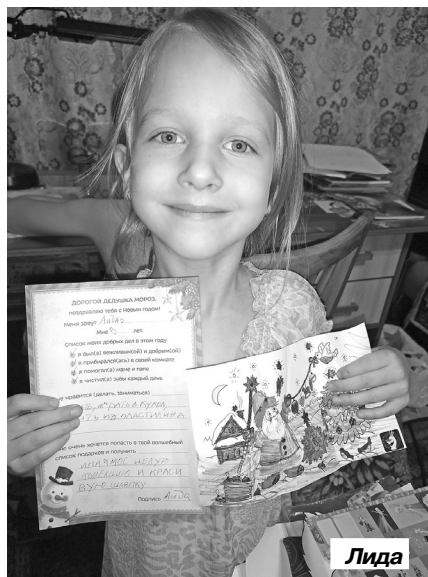 ДОРОГОЙ ДЕДУШКА МОРОЗ,
поздравляю тебя с Новым годом!
Меня зовут Лида
Мне лет.
Список моих добрых дел в этом году
я был(а) вежливым(ой) и добрым(ой)
я прибирался(ась) в своей комнате
я помогал(а) маме и папе
я чистил(а) зубы каждый день
нравится (делать, заниматься)
ИГРАТЬ В КУКОЛ,
ИЗ ПЛАСТИЛИНА.
очень хочется попасть в твой волшебный
список подарков и получить
И КРАСИ
ВУЮ
Подпись Лида
Лида